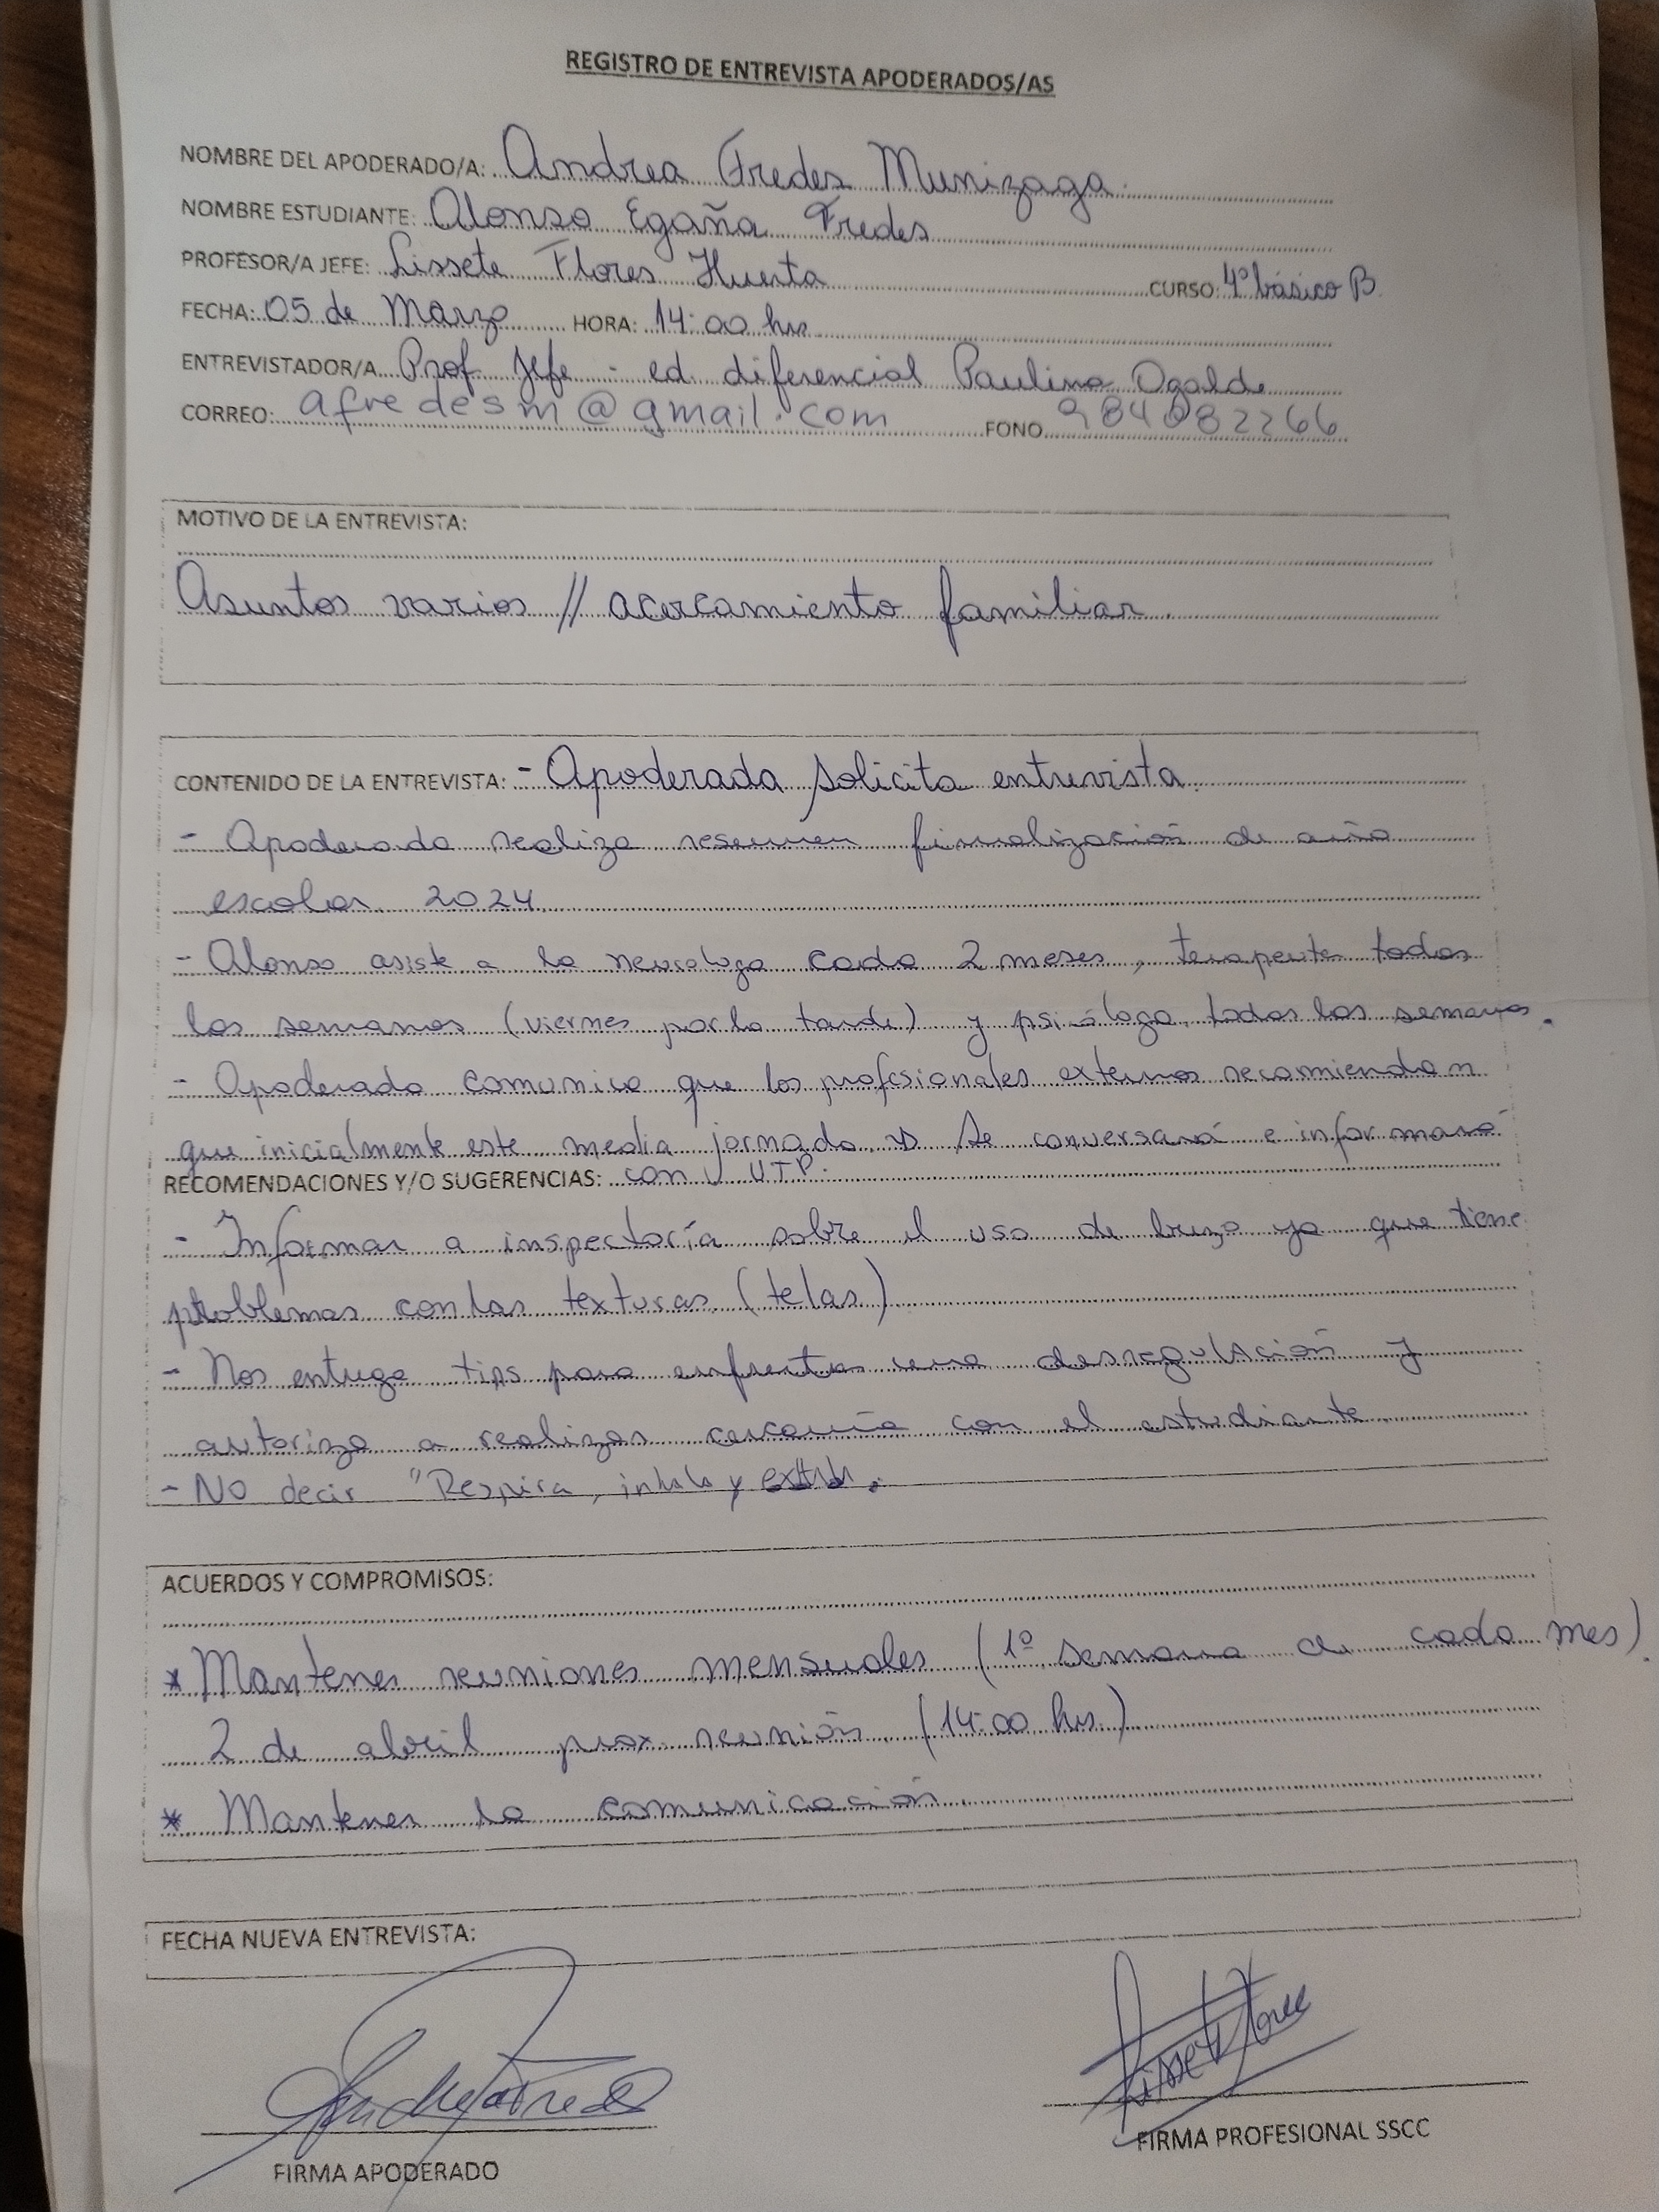 REGISTRO DE ENTREVISTA APODERADOS/AS
NOMBRE DEL APODERADO/A: Andrea Fredes Munizaga.
NOMBRE ESTUDIANTE: Alonso Egaña Fredes
PROFESOR/A JEFE: Lissete Flores Huerta CURSO: 4º básico B.
FECHA: 05 de Marzo HORA: 14:00 hrs
ENTREVISTADOR/A Prof. Jefe - ed. diferencial Paulina Ogalde
CORREO: afredesm@gmail.com FONO 984082266
MOTIVO DE LA ENTREVISTA:
Asuntos varios // acercamiento familiar.
CONTENIDO DE LA ENTREVISTA: - Apoderada solicita entrevista.
- Apoderada realiza resumen finalización de año
escolar 2024
- Alonso asiste a la neurologa cada 2 meses, terapeuta todas
las semanas (viernes por la tarde) y psicóloga todas las semanas.
- Apoderada comunica que los profesionales externos recomiendan
que inicialmente este media jornada → Se conversará e informará
RECOMENDACIONES Y/O SUGERENCIAS: con UTP.
- Informar a inspectoría sobre el uso de buzo ya que tiene
problemas con las texturas (telas)
- Nos entrega tips para enfrentar una desregulación y
autoriza a realizar cercanía con el estudiante
- No decir "Respira, inhala y
ACUERDOS Y COMPROMISOS:
* Mantener reuniones mensuales (1º semana de cada mes).
2 de abril prox. reunión (14:00 hrs.)
* Mantener la comunicación.
FECHA NUEVA ENTREVISTA:
Andrea Fredes
Lissete Flores
FIRMA APODERADO
FIRMA PROFESIONAL SSCC